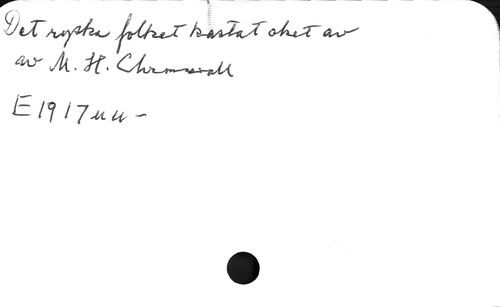 Det ryska folket kastat oket av
av M. H.
E 1917 uu -